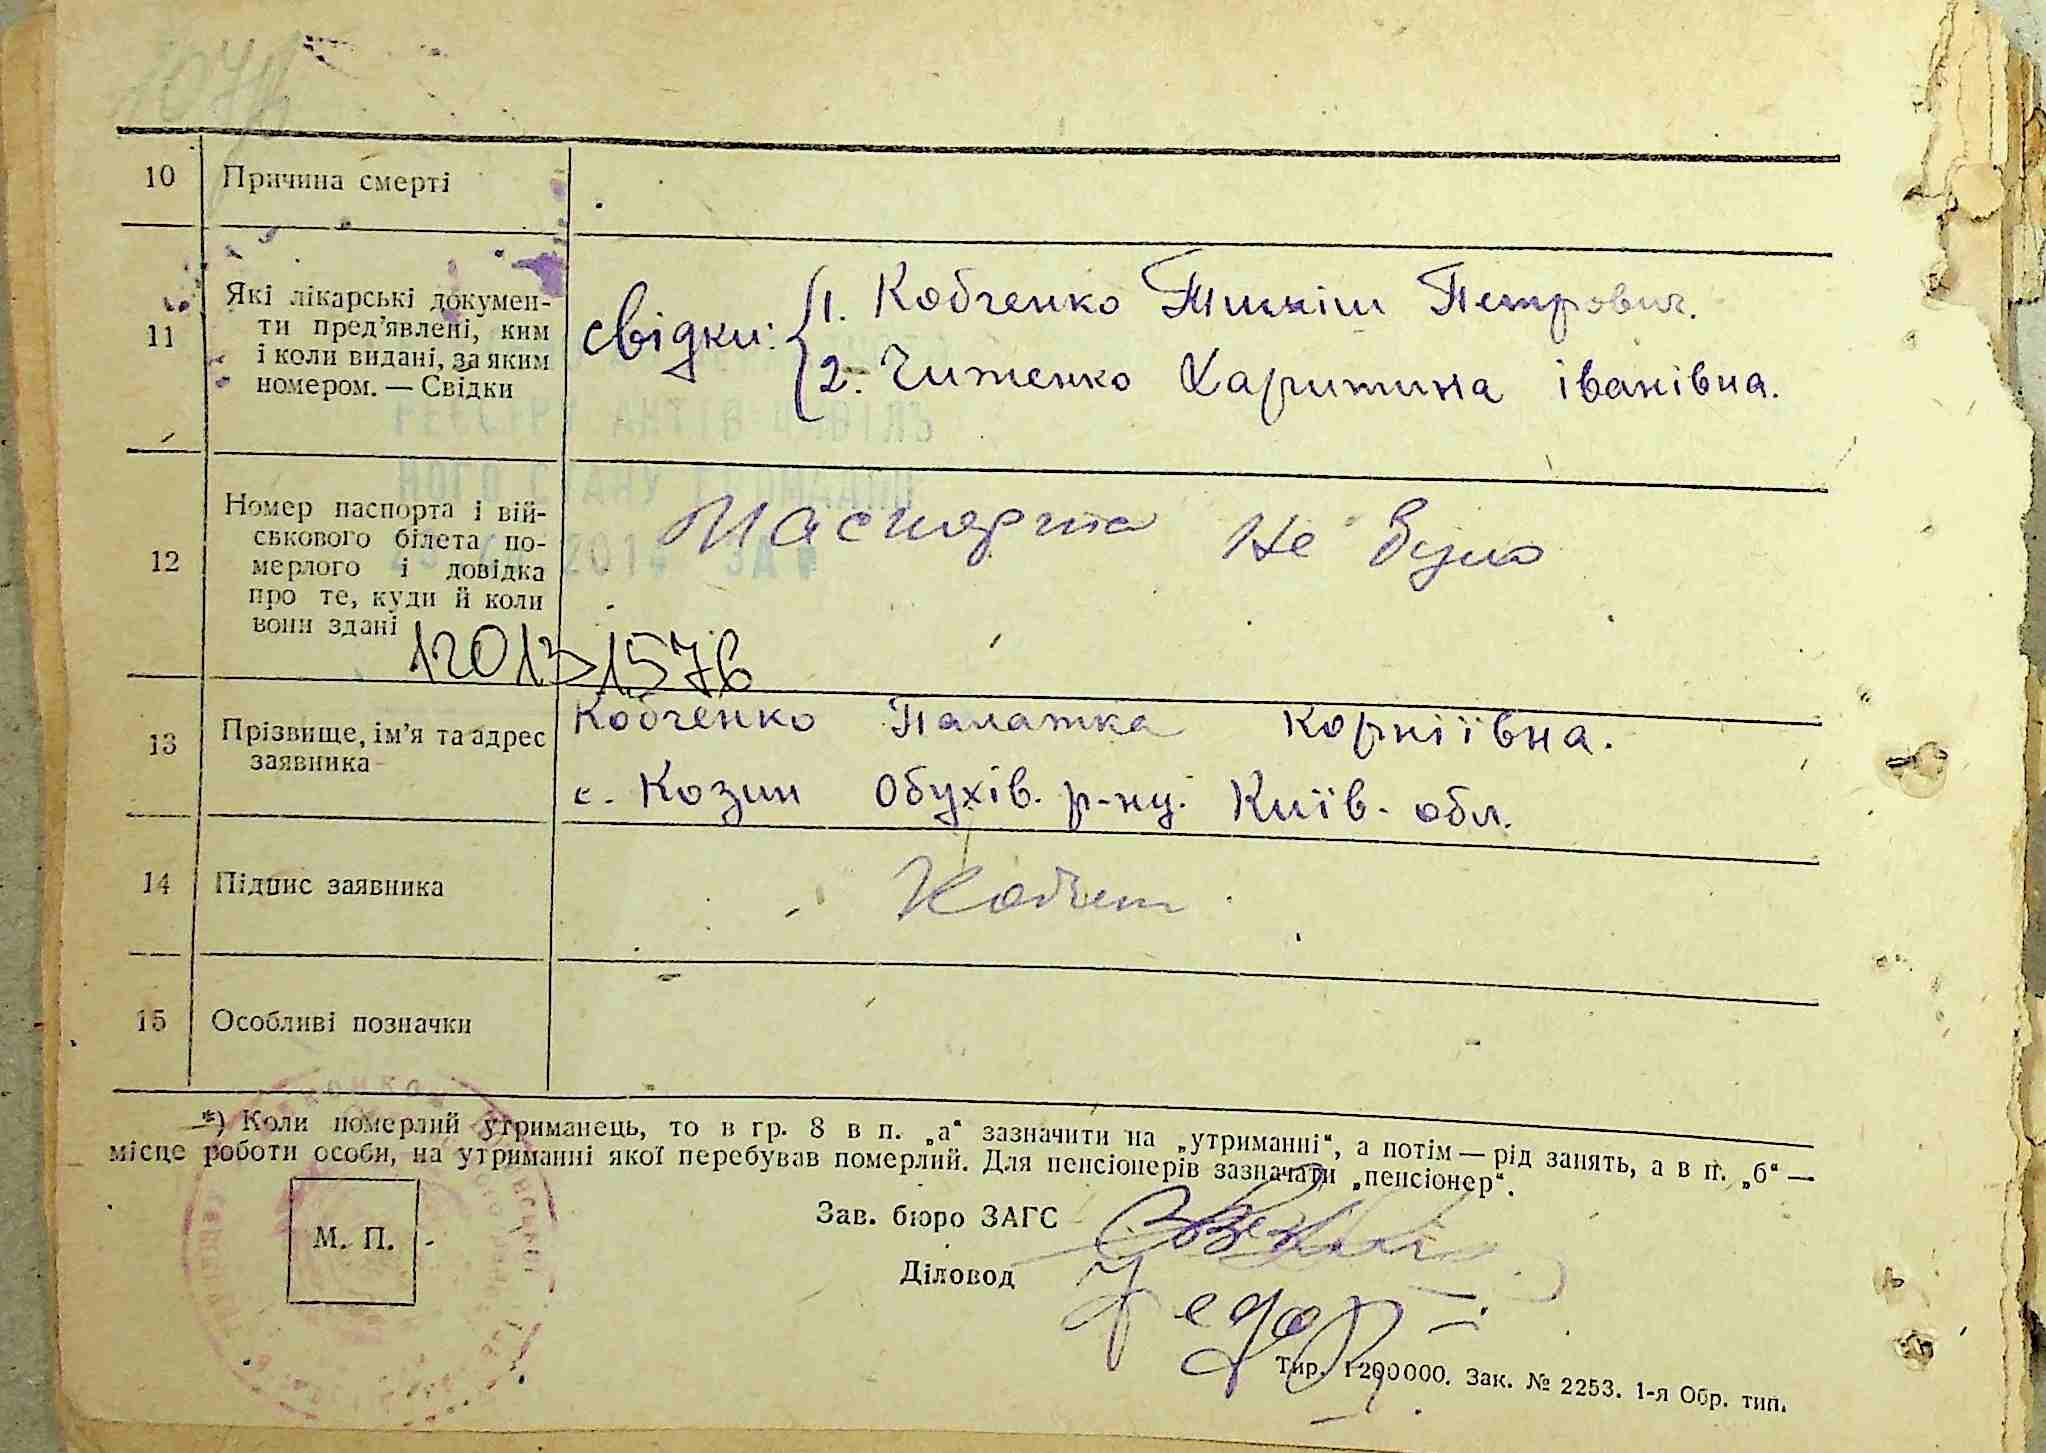 10 Причина смерті
11 Які лікарські докумен-
ти пред'явлені, ким
і коли видані, за яким
номером. — Свідки
свідки:
1. Кобченко Тиміш Петрович.
2. Чиженко Харитина іванівна.
РЕЄСТРУ АКТІВ ЦИВІЛЬ
НОГО СТАНУ ГРОМАДЯН
2014
12 Номер паспорта і вій-
ськового білета по-
мерлого і довідка
про те, куди й коли
вони здані
Паспорта не було
12013 1576
13 Прізвище, ім'я та адрес
заявника
Кобченко Палажка Корніївна.
с. Козин Обухів. р-ну. Київ. обл.
14 Підпис заявника
Кобчен
15 Особливі позначки
*) Коли померлий утриманець, то в гр. 8 в п. „а“ зазначити на „утриманні“, а потім — рід занять, а в п. „б“ —
місце роботи особи, на утриманні якої перебував померлий. Для пенсіонерів зазначати „пенсіонер“.
М. П.
Зав. бюро ЗАГС
Діловод
Тир. 1200000. Зак. № 2253. 1-я Обр. тип.